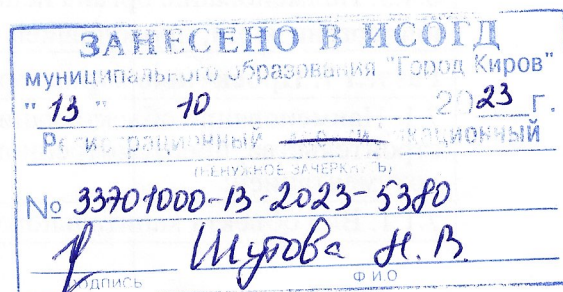 ЗАНЕСЕНО В ИСОГД
муниципального образования "Город Киров"
" 13 " 10 2023 г.
Регистрационный,
(НЕНУЖНОЕ ЗАЧЕРКНУТЬ)
№ 33701000-13-2023-5380
Шутова Н. В.
подпись Ф.И.О